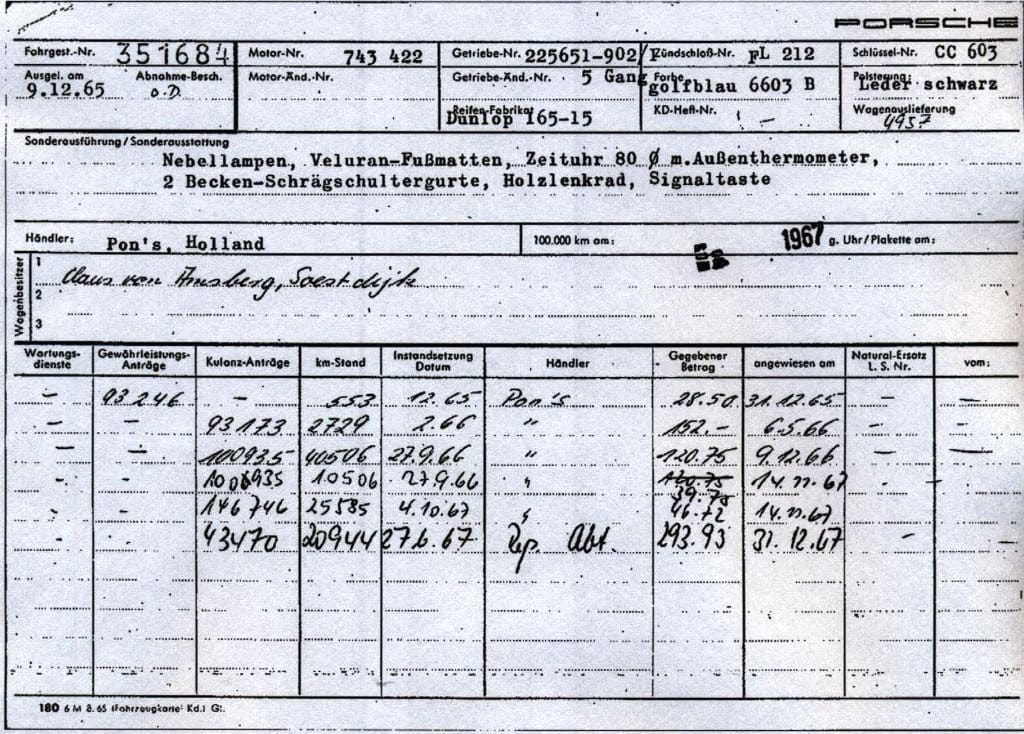 PORSCHE
Fahrgest.-Nr. 351684 Motor-Nr. 743 422 Getriebe-Nr. 225651-902/ Zündschloß-Nr. FL 212 Schlüssel-Nr. CC 603
Ausgel. am 9.12.65 Abnahme-Besch. o.D. Motor-Änd.-Nr. Getriebe-Änd.-Nr. 5 Gang Farbe golfblau 6603 B Polsterung: Leder schwarz
Reifen-Fabrikat Dunlop 165-15 KD-Heft-Nr. - Wagenauslieferung 4957
Sonderausführung/Sonderausstattung
Nebellampen, Veluran-Fußmatten, Zeituhr 80 Ø m.Außenthermometer,
2 Becken-Schrägschultergurte, Holzlenkrad, Signaltaste
Händler: Pon's, Holland 100.000 km am: 1967 g. Uhr/Plakette am:
Wagenbesitzer
1 Claus von Amsberg, Soestdijk
2
3
Wartungs-dienste Gewährleistungs-Anträge Kulanz-Anträge km-Stand Instandsetzung Datum Händler Gegebener Betrag angewiesen am Natural-Ersatz L. S. Nr. vom:
- 93246 - 553 12.65 Pon's 28.50 31.12.65 - -
- - 93173 2729 2.66 " 152.- 6.5.66 - -
- - 100935 40506 27.9.66 " 120.75 9.12.66 - -
- - 1006935 10506 27.9.66 " 120.75 14.11.67 - -
39.75
- - 146746 25585 4.10.67 " 46.72 14.11.67
- - 43470 20944 27.6.67 Rep. Abt. 293.93 31.12.67 - -
180 6 M 8.65 (Fahrzeugkarte Kd.) G.